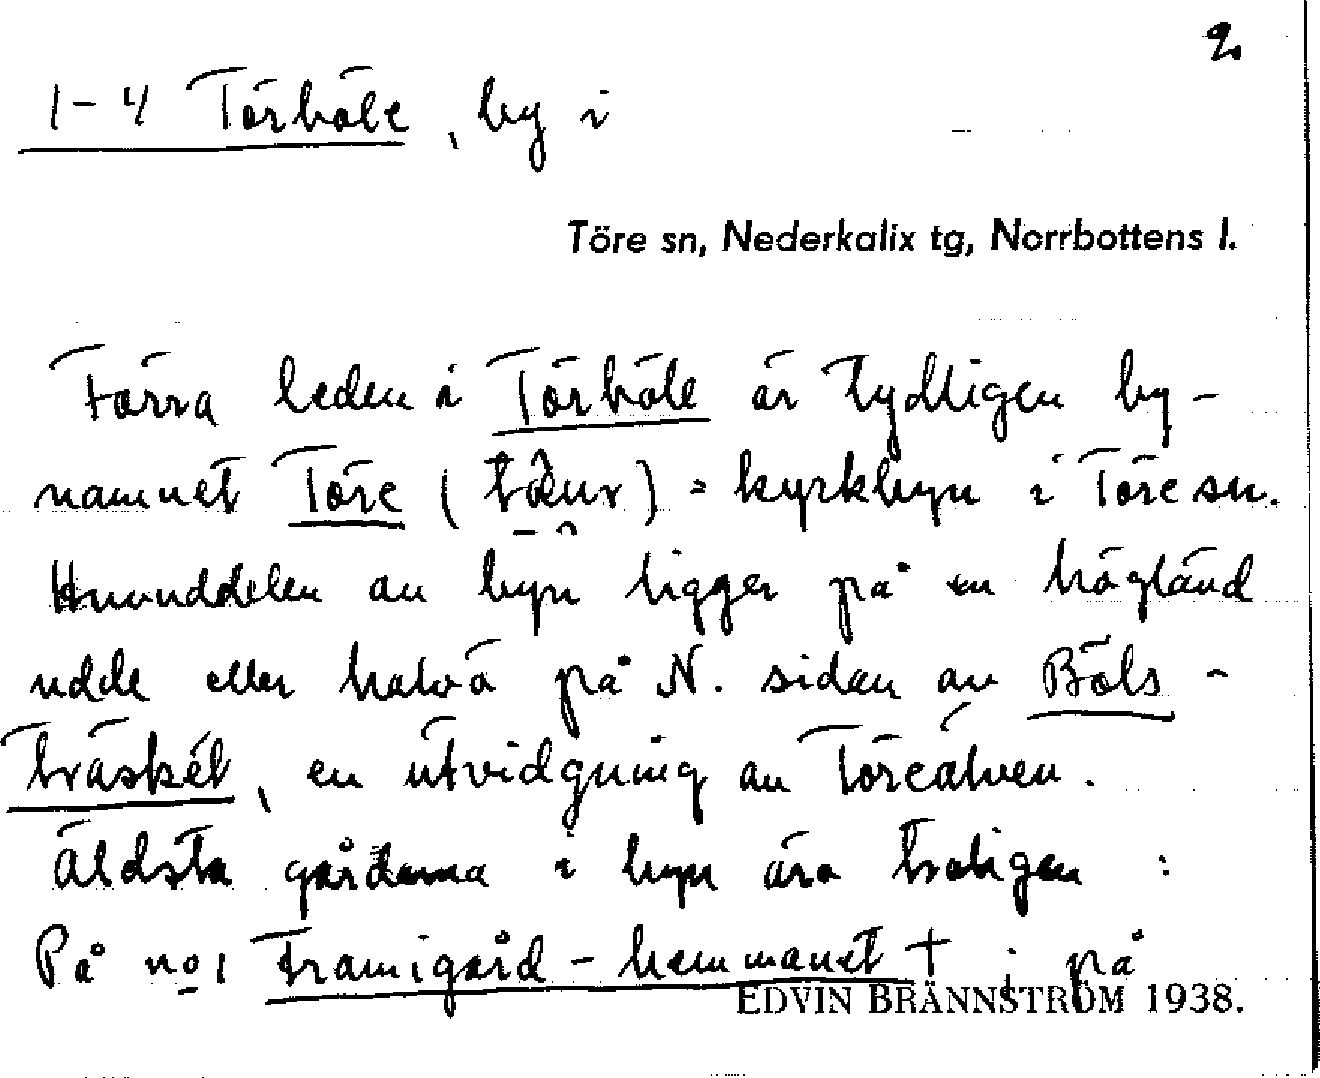 2
1-4 Törböle, by i
Töre sn, Nederkalix tg, Norrbottens l.
Förra leden i Törböle är tydligen by-
namnet Töre () = kyrkbyn i Töre sn.
Huvuddelen av byn ligger på en högländ
udde eller halvö på N. sidan av Böls-
träsket, en utvidgning av Töreälven.
Äldsta gårdarna i byn äro troligen:
På no 1 Framigård-hemmanet †; på
EDVIN BRÄNNSTRÖM 1938.